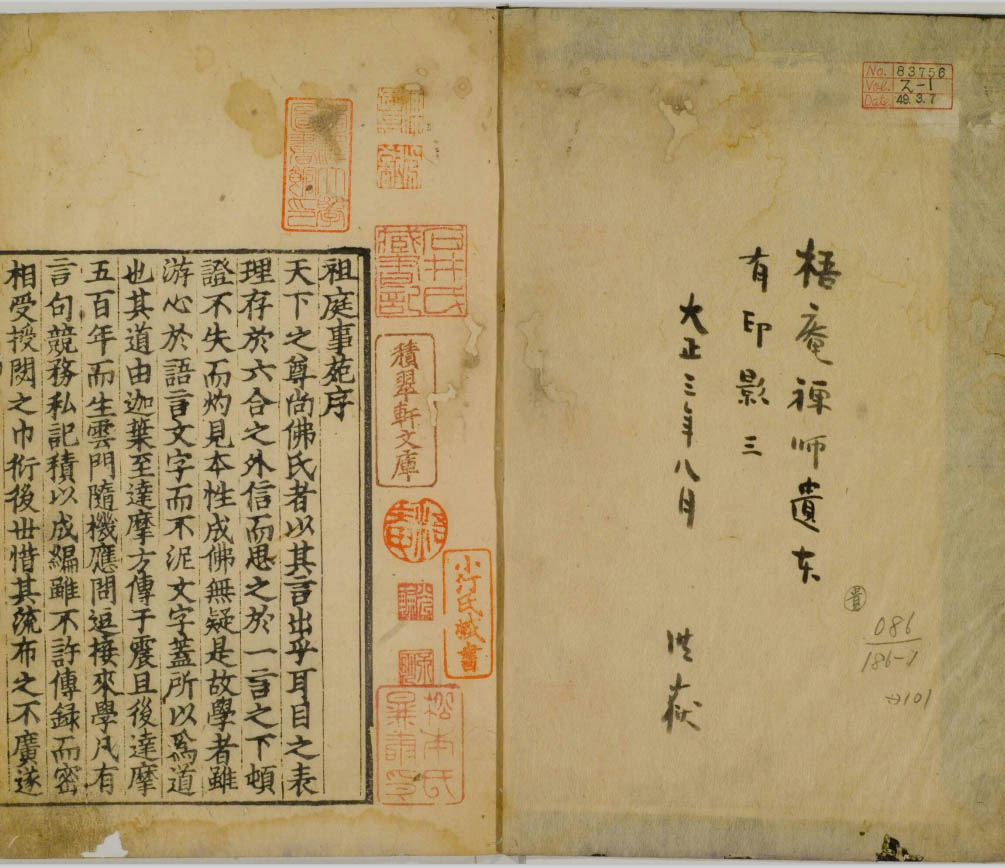 No. 83756
Vol. ス-1
Date 49.3.7
梧庵禅師遺
有印影三
大正三年八月 洪嶽
086
186-1
石井氏
蔵書記
積翠軒文庫
小汀氏蔵書
松本氏
祖庭事苑序
天下之尊尚佛氏者以其言出乎耳目之表
理存於六合之外信而思之於一言之下頓
證不失而灼見本性成佛無疑是故學者雖
游心於語言文字而不泥文字蓋所以爲道
也其道由迦葉至達摩方傳于震旦後達摩
五百年而生雲門隨機應問逗接來學凡有
言句競務私記積以成編雖不許傳録而密
相受授閟之巾衍後世惜其流布之不廣遂